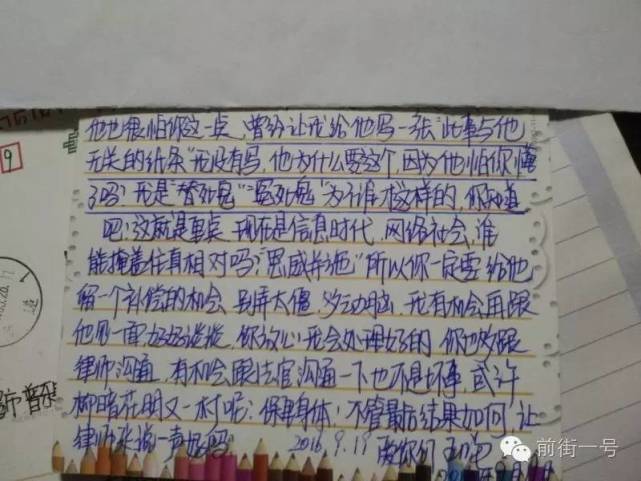 他也很怕你这一点，曾经让我给他写一张“此事与他
无关的纸条”我没有写，他为什么要这个，因为他怕你懂
了吗？我是“替死鬼”“冤死鬼”为了谁才这样的，你知道
吧！这就是重点 现在是信息时代，网络社会，谁
能掩盖住真相对吗；“恩威并施”所以你一定要给他
留一个补偿的机会 别弄太僵，多动脑，我有机会再跟
他见一面好好谈谈，你放心我会处理好的 你也多跟
律师沟通，有机会跟法官沟通一下也不是坏事，或许
柳暗花明又一村呢；保重身体，不管最后结果如何，让
律师 说一声好吗 2016.9.19 爱你们
9
前街一号